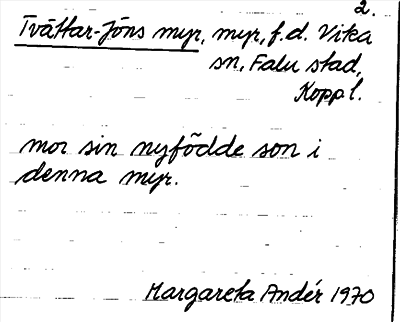 2.
Tvättar-Jöns myr, myr, f.d. Vika
sn, Falu stad,
Koppl.
mor sin nyfödde son i
denna myr.
Margareta Andér 1970